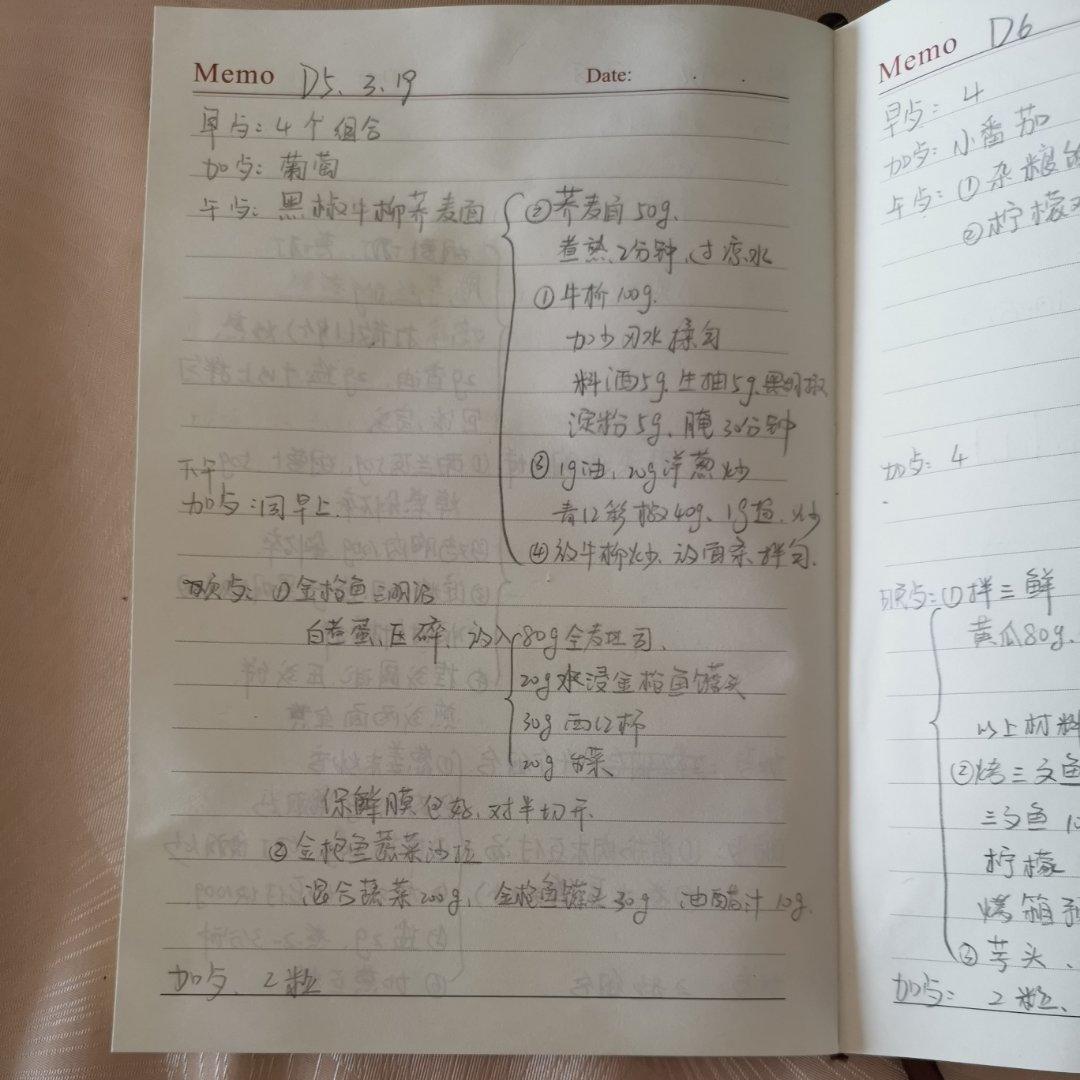 Memo D5. 3.19 Date: . .
早与: 4个组合
加与: 葡萄
午与: 黑椒牛柳荞麦面
②荞麦面50g.
煮熟2分钟,过凉水
①牛柳100g.
加少水揉匀
料酒5g.生抽5g.黑胡椒
淀粉5g、腌30分钟
③1g油、20g洋葱炒
青红彩椒40g、1g盐、炒
④放牛柳炒、放面条拌匀.
下午
加与:同早上.
晚与: ①金枪鱼三明治
白煮蛋,压碎,放入
80g全麦吐司.
20g水浸金枪鱼罐头
30g西红柿
20g 菜
保鲜膜包好,对半切开.
②金枪鱼蔬菜沙拉
混合蔬菜200g, 金枪鱼罐头30g 油醋汁10g.
加与、2粒
Memo D6
早与: 4
加与: 小番茄
午与: ①杂粮
②柠檬
加与: 4
晚与:①拌三鲜
黄瓜80g.
以上材料
②烤三文鱼
三文鱼
柠檬
烤箱
③芋头、
加与: 2粒、